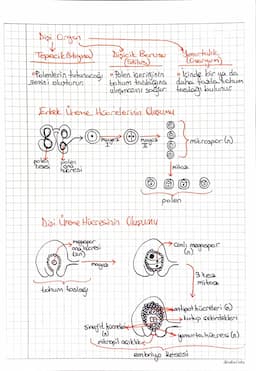 Dişi Organ
Tepecik (Stigma)
Dişicik Borusu (Stilus)
Yumurtalık (Ovaryum)
• Polenlerin tutunacağı
• Polen kesesinin
• İçinde bir ya da
daha fazla tohum
tohum taslağına
taslağı bulunur.
ulaşmasını sağlar.
Erkek Üreme Hücrelerinin Oluşumu
mayoz I
mayoz II
mikrospor (n)
polen kesesi
polen ana hücresi
mitoz
polen
Dişi Üreme Hücresinin Oluşumu
megaspor ana hücresi (2n)
mayoz
canlı megaspor (n)
tohum taslağı
3 kez mitoz
antipot hücreleri (3)
kutup çekirdekleri
sinerjit hücreler
yumurta hücresi (n)
mikropil açıklığı
embriyo kesesi